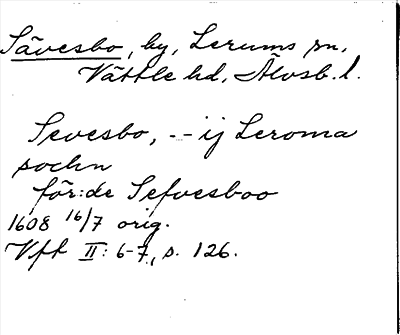 Sävesbo, by, Lerums sn,
Vättle hd, Älvsb. l.
Sevesbo, -- ij Leroma
sochn
för:de Sefvesboo
1608 16/7 orig.
Vft II: 6-7, s. 126.